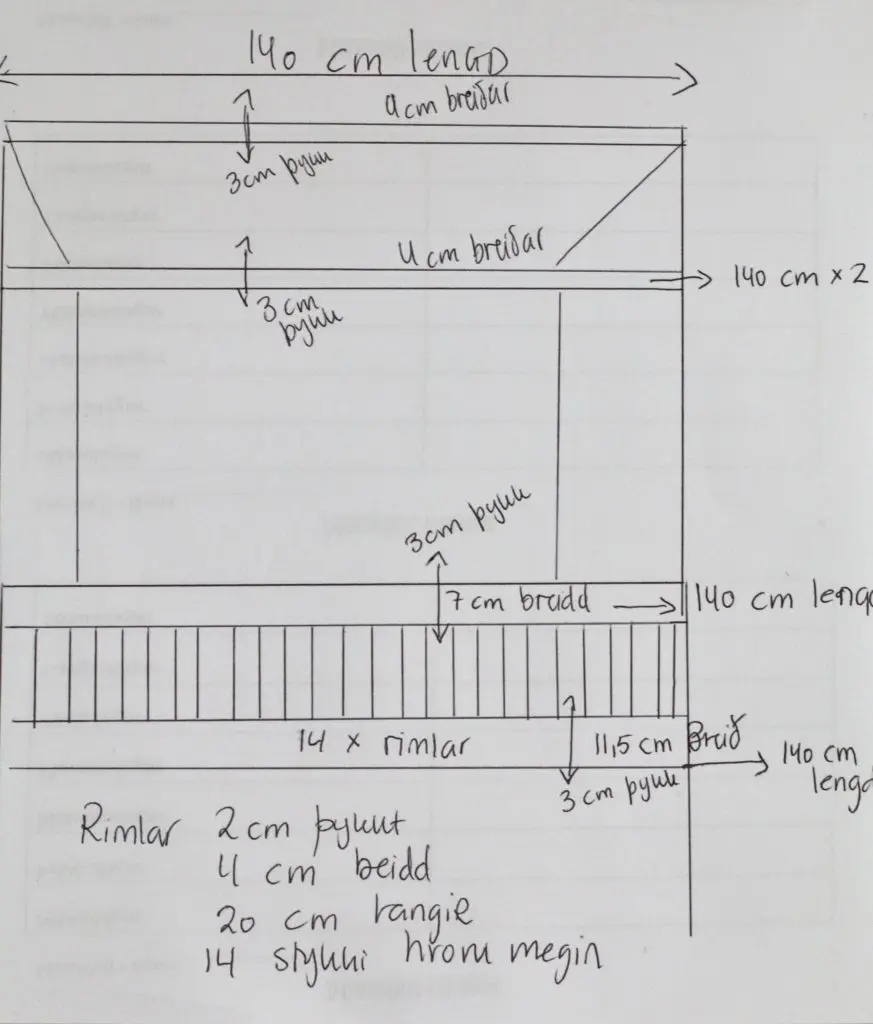 140 cm lengD
4cm breiðar
3cm þykk
4 cm breiðar
140 cm x 2
3 cm
þykk
3cm þykk
7 cm breidd
140 cm leng
14 x rimlar
11,5 cm Breið
140 cm
lengd
3 cm þykk
Rimlar 2 cm þykkt
4 cm beidd
20 cm
14 stykki hvoru megin